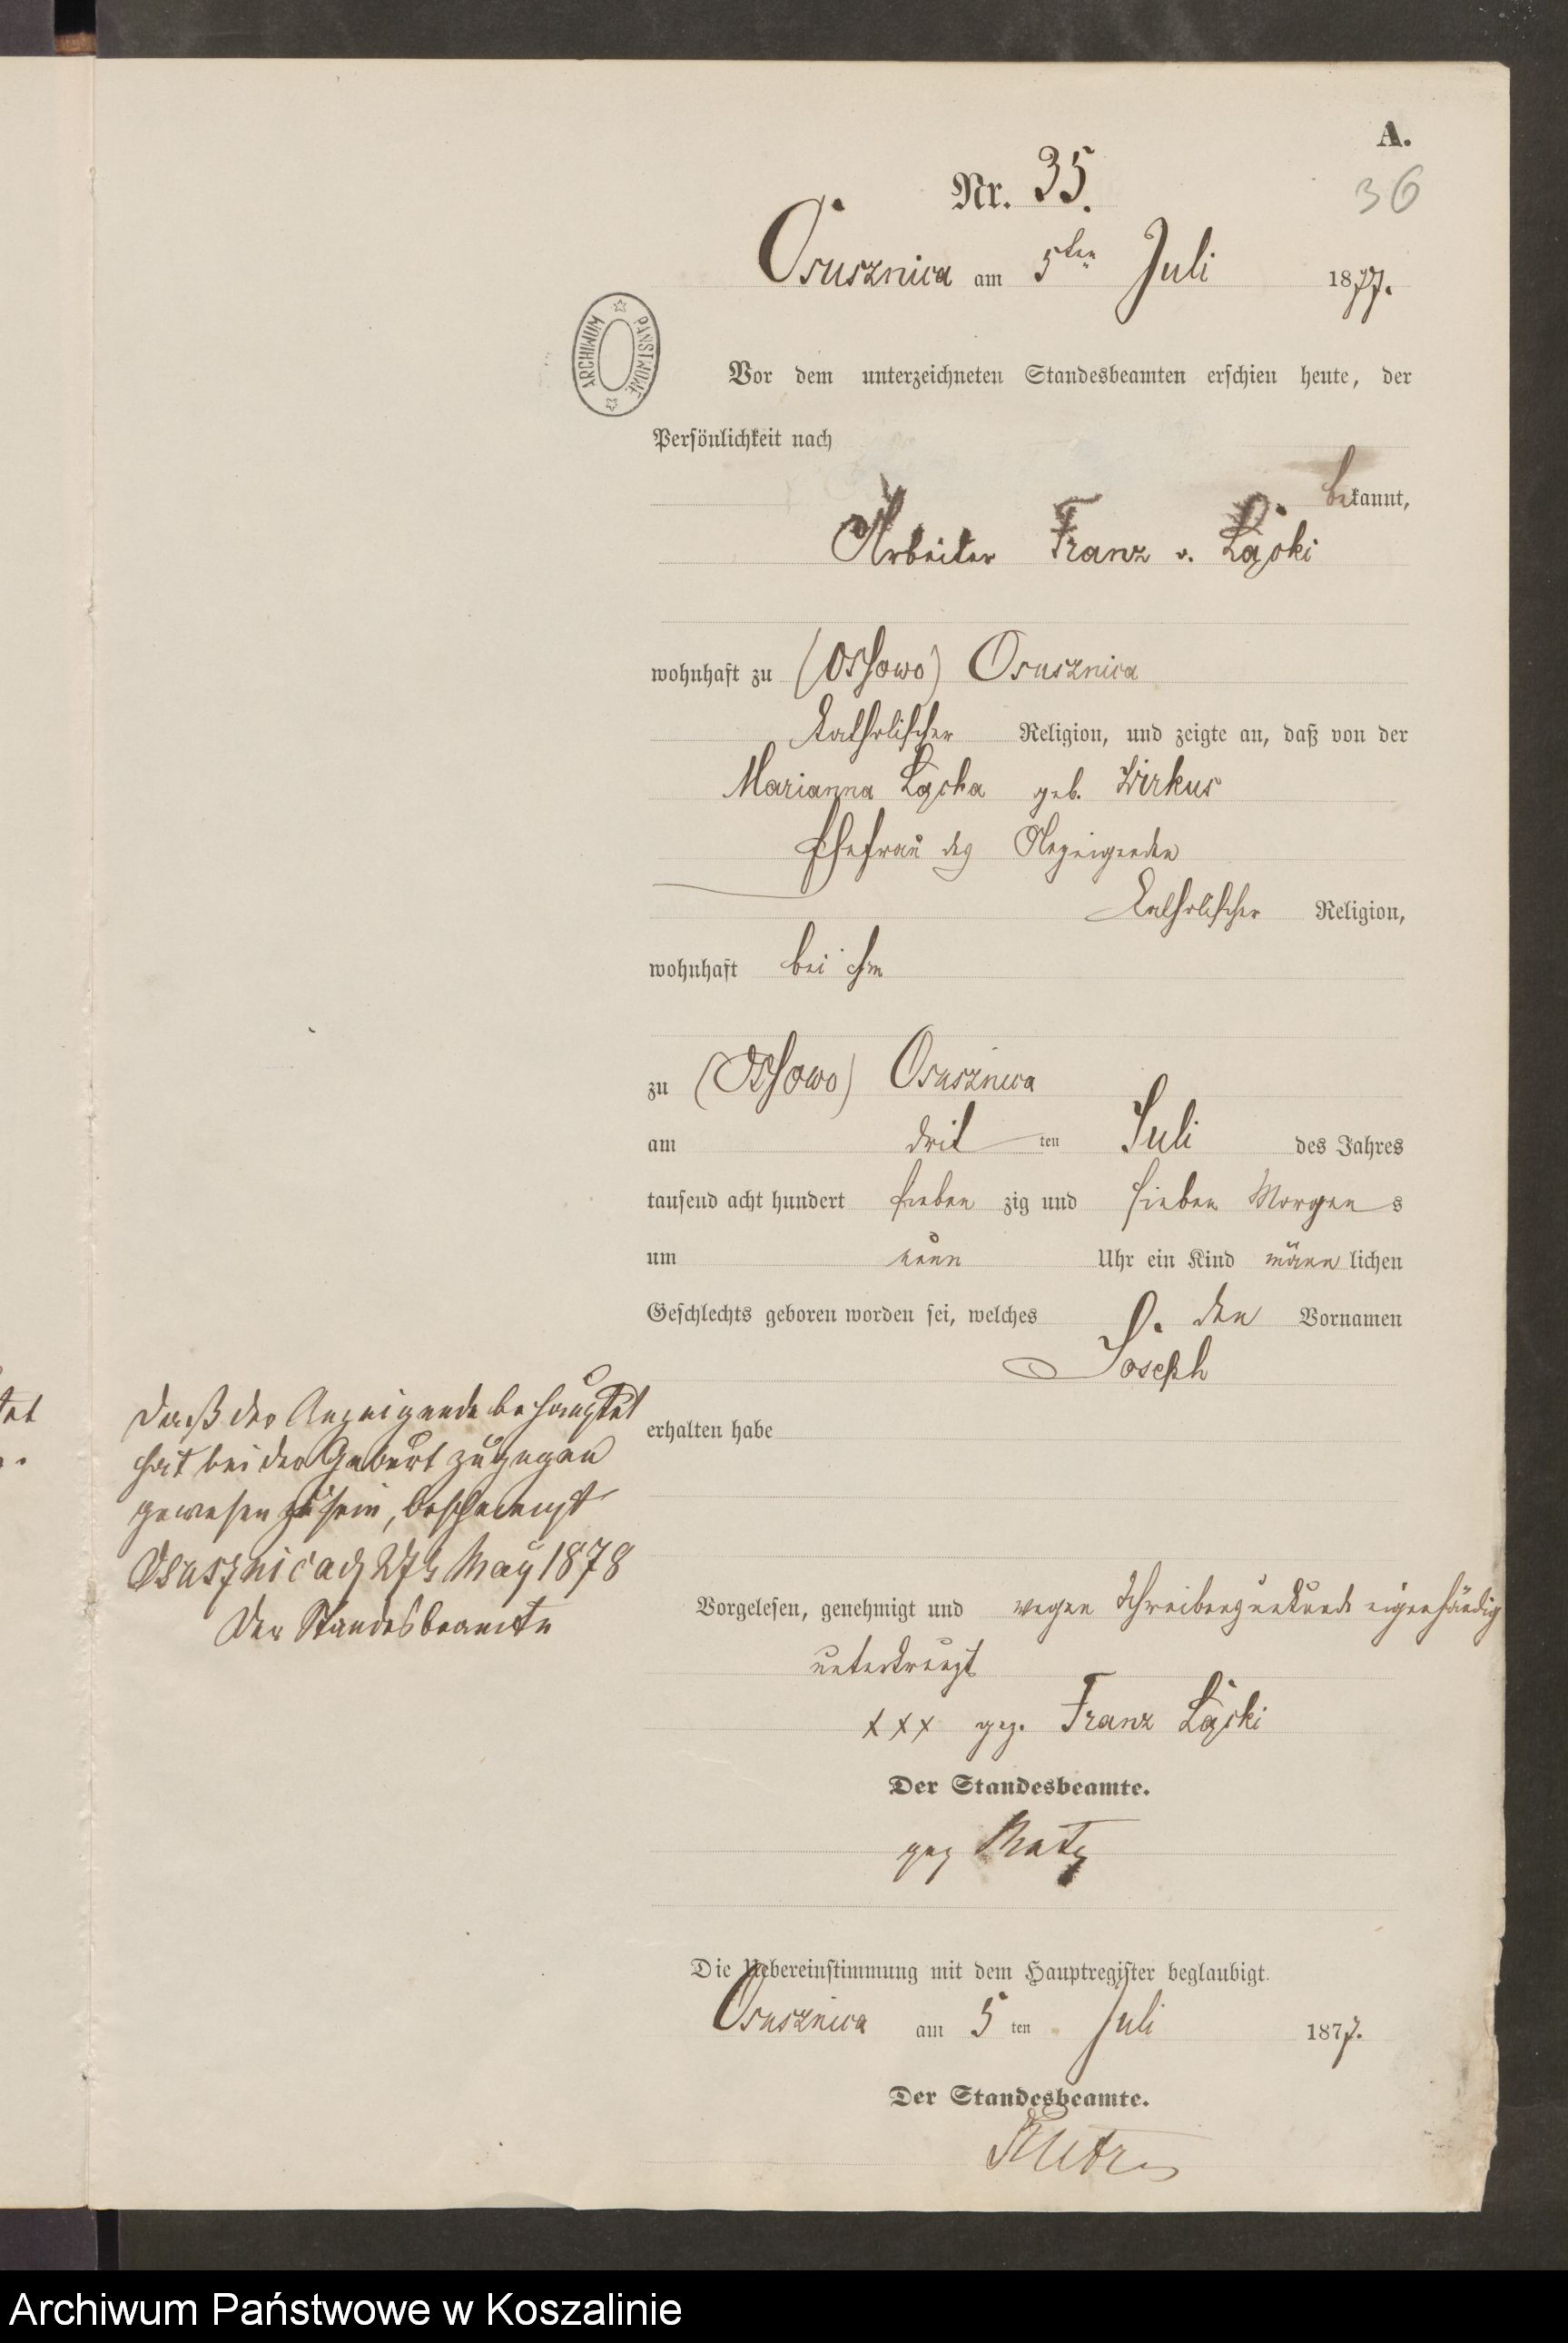 A.
Nr. 35.
36
Osusznica am 5ten Juli 1877.
ARCHIWUM PAŃSTWOWE
Vor dem unterzeichneten Standesbeamten erschien heute, der
Persönlichkeit nach
bekannt,
Arbeiter Franz v. Łąski
wohnhaft zu (Ossowo) Osusznica
katholischer Religion, und zeigte an, daß von der
Marianna Łąska geb. Wirkus
Ehefrau des Anzeigenden
katholischer Religion,
wohnhaft bei ihm
zu (Ossowo) Osusznica
am dritten Juli des Jahres
tausend acht hundert sieben zig und sieben Morgens
um neun Uhr ein Kind männlichen
Geschlechts geboren worden sei, welches den Vornamen
Joseph
erhalten habe
Daß der Anzeigende behauptet
hat bei der Geburt zugegen
gewesen zu sein, bescheinigt
Osusznica d 27t May 1878
Der Standesbeamte
Vorgelesen, genehmigt und wegen Schreibensunkunde eigenhändig
unterkreuzt
xxx gez. Franz Łąski
Der Standesbeamte.
gez
Die Uebereinstimmung mit dem Hauptregister beglaubigt.
Osusznica am 5 ten Juli 1877.
Der Standesbeamte.
Archiwum Państwowe w Koszalinie